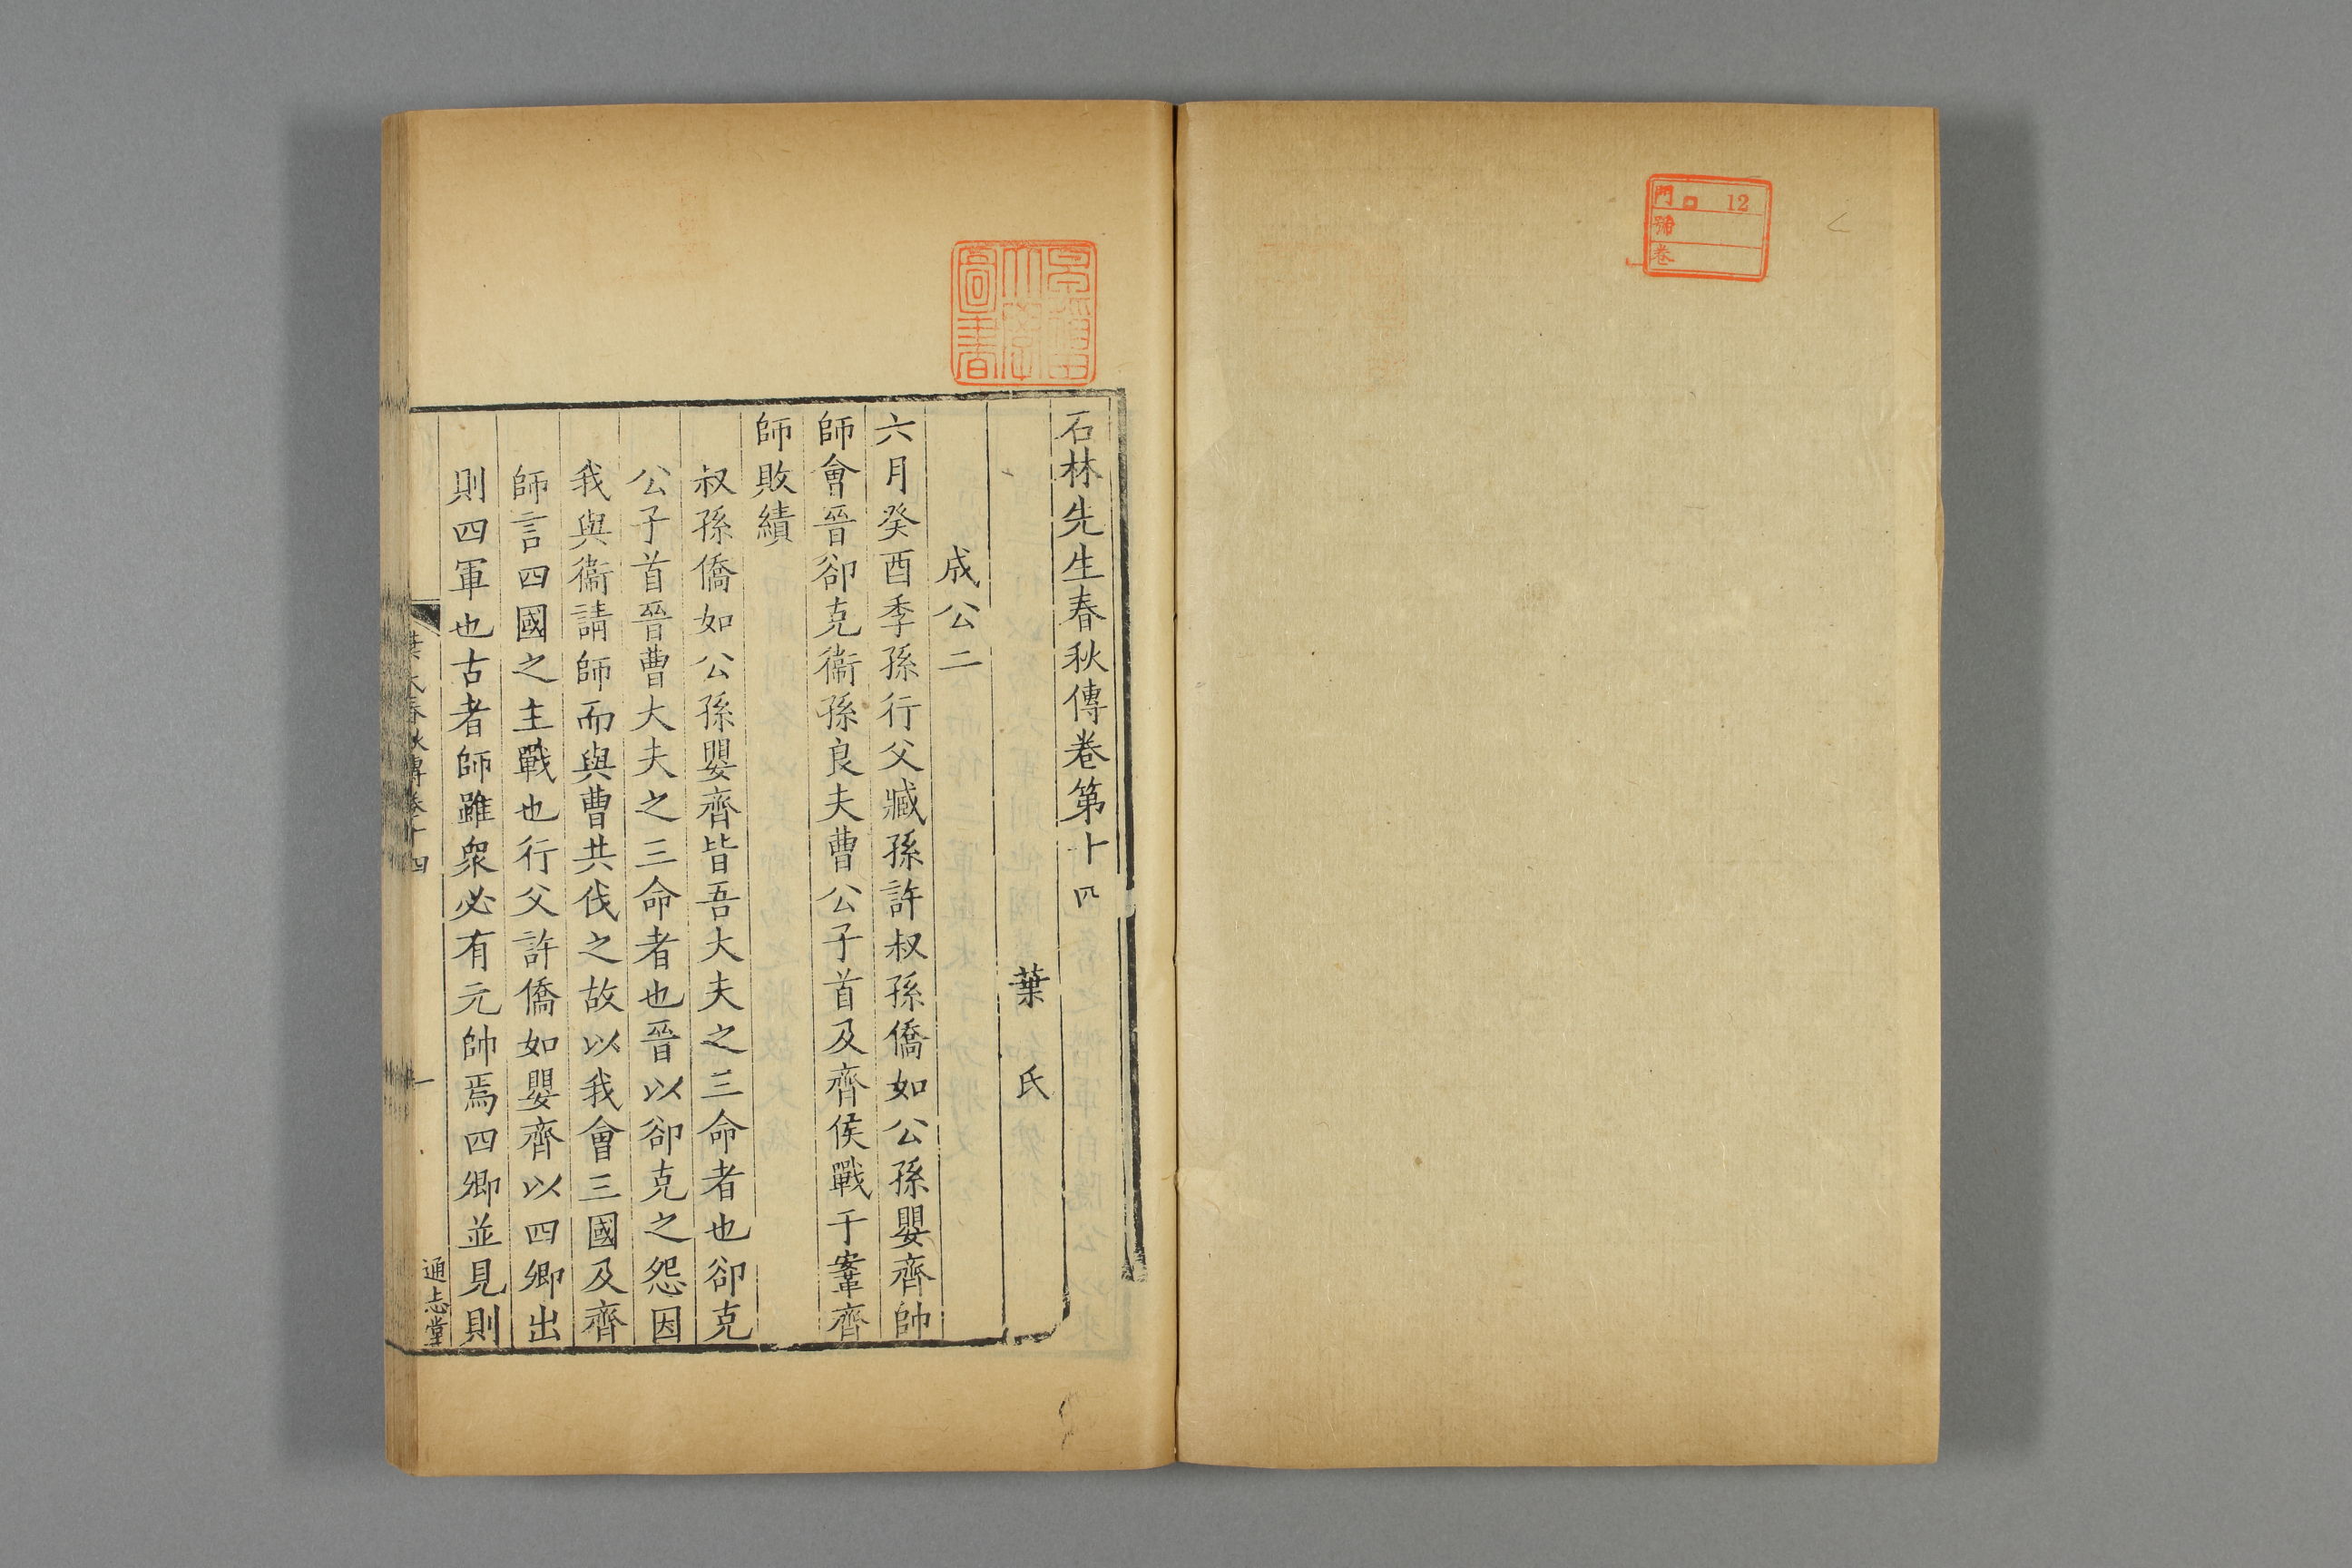 門 口 12
號
卷
早稲田大學圖書
石林先生春秋傳卷第十四
葉氏
成公二
六月癸酉季孫行父臧孫許叔孫僑如公孫嬰齊帥
師會晉郤克衞孫良夫曹公子首及齊侯戰于鞌齊
師敗績
叔孫僑如公孫嬰齊皆吾大夫之三命者也郤克
公子首晉曹大夫之三命者也晉以郤克之怨因
我與衞請師而與曹共伐之故以我會三國及齊
師言四國之主戰也行父許僑如嬰齊以四卿出
則四軍也古者師雖衆必有元帥焉四卿並見則
葉氏春秋傳卷十四
一
通志堂